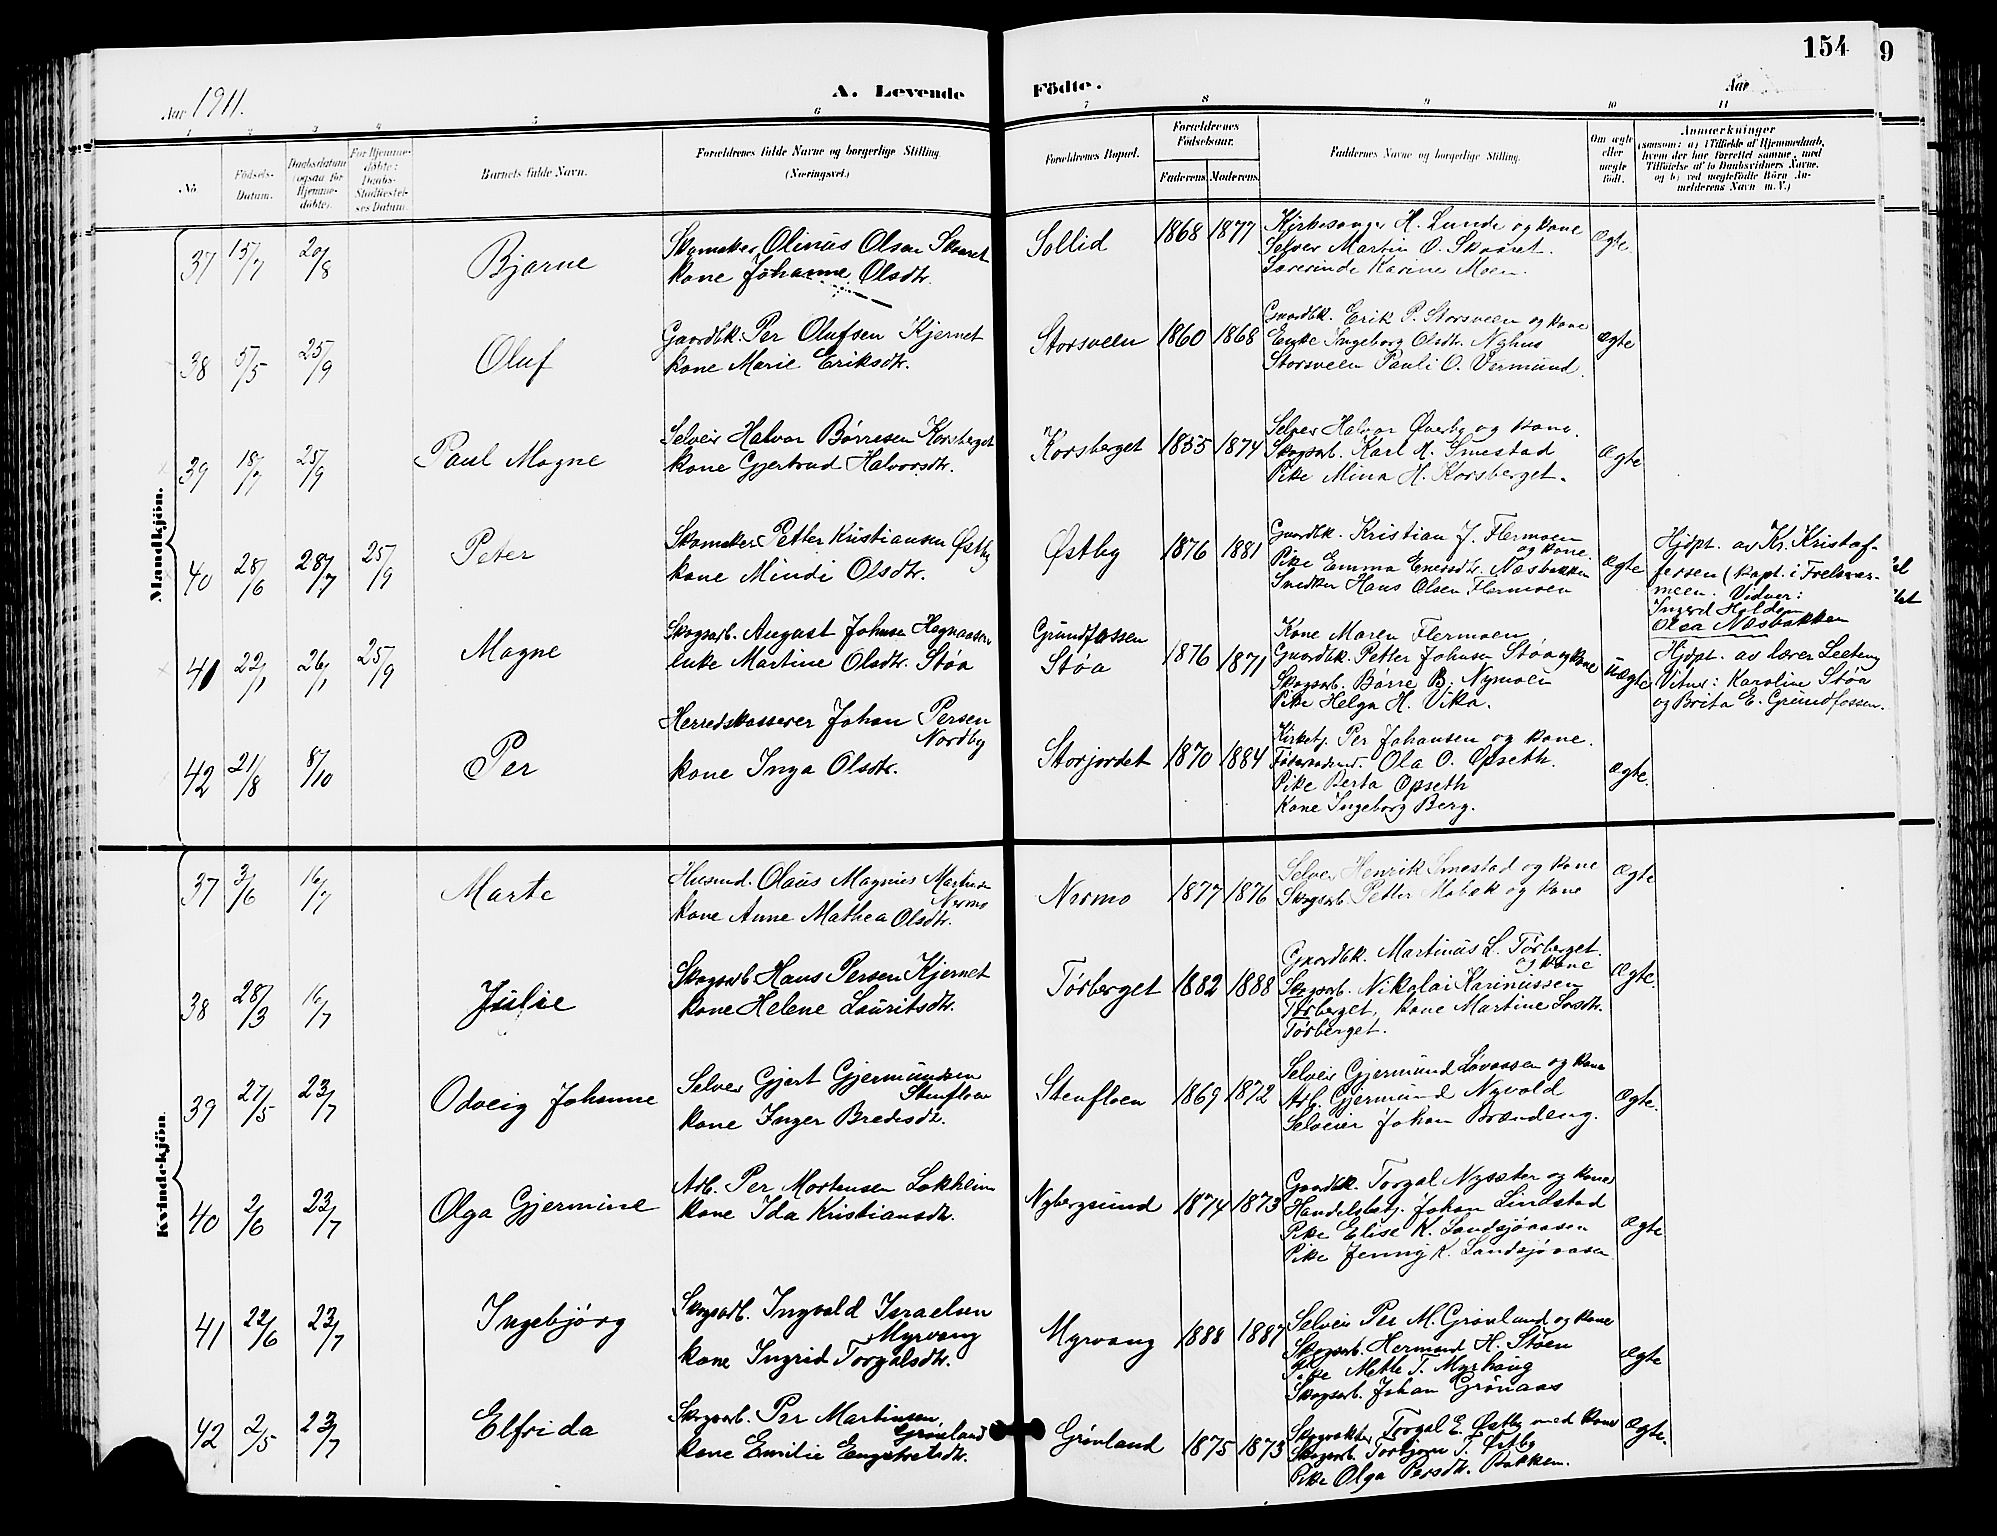 154
9
Aar 1911.
A. Levende
Födte.
Aar
1 2 3 4 5 6 7 8 9 10 11
No
Födsels-Datum.
Daabsdatum (ogsaa for Hjemme-döbte).
For Hjemme-döbte: Daabs-Stadfæstelses Datum.
Barnets fulde Navn.
Forældrenes fulde Navne og borgerlige Stilling (Næringsvei.)
Forældrenes Bopæl.
Forældrenes Födselsaar.
Faderens Moderens
Faddernes Navne og borgerlige Stilling.
Om ægte eller uægte födt.
Anmærkninger
(saasom: a) i Tilfælde af Hjemmedaab,
hvem der har forrettet samme, med
Tilföielse af to Daabsvidners Navne.
og b) ved uægtefödte Börn An-
melderens Navn m. V.)
Mandkjön.
37 15/7 20/8 Bjarne
Skomaker Olinus Olsen Skaaret
kone Johanne Olsdtr.
Sollid 1868 1877
Kirkesanger H. Lunde og kone
Selveier Martin O. Skaaret.
Lærerinde Karine Moen.
Ægte
38 5/5 25/9 Oluf
Gaardbk. Per Olufsen Kjernet
kone Marie Eriksdtr.
Storsveen 1860 1868
Gaardbk. Erik P. Storsveen og kone
Enke Ingeborg Olsdtr. Nyhus
Storsveen Pauli O. Vermund.
Ægte
39 18/7 25/9 Paul Magne
Selveier Halvor Børresen Korsberget
kone Gjertrud Halvorsdtr.
Korsberget 1855 1874
Selveier Halvor Øverby og kone.
Skogsarb. Karl M. Smestad
Pike Mina H. Korsberget.
Ægte
40 28/6 28/7 25/9 Peter
Skomaker Petter Kristiansen Østby
kone Mindi Olsdtr.
Østby 1876 1881
Gaardbk. Kristian J. Flermoen
og kone.
Pike Emma Enersdtr. Næsbakken
Snedker Hans Olsen Flermoen
Ægte
Hjdpt. av Kr. Kristof-
fersen (kapt. i Frelsesar-
meen. Vidner:
Ingerd Holdsen
Olea Næsbakken
41 22/1 26/1 25/9 Magne
Skogsarb. August Johnsen
enke Martine Olsdtr. Støa
Grundfossen
Støa 1876 1871
Kone Maren Flermoen
Gaardbk. Petter Johnsen Støa og kone
Skogsarb. Børre B. Nymoen
Pike Helga H. Vika.
Uægte
Hjdpt. av lærer Leeteng
Vitner: Karoline Støa
og Brita E. Grundfossen.
42 21/8 8/10 Per
Herredskasserer Johan Persen
Nordby
kone Inga Olsdtr.
Storjordet 1870 1884
Kirketj. Per Johansen og kone.
Føderaadsmd. Ola O. Opseth.
Pike Berta Opseth
Kone Ingeborg Berg.
Ægte.
Kvindekjön.
37 3/6 16/7 Marte
Husmd. Olaus Magnus Martinsen
Nermo
kone Anne Mathea Olsdtr.
Nermo 1877 1876
Selveier Henrik Smestad og kone
Skogsarb. Petter Mobæk og kone
Ægte
38 28/3 16/7 Julie
Skogsarb. Hans Persen Kjernet
kone Helene Lauritsdtr.
Tørberget 1882 1888
Gaardbk. Martinus L. Tørberget.
og kone
Skogsarb. Nikolai Karinussen
Tørberget, kone Martine Larsdtr.
Tørberget.
Ægte.
39 27/5 23/7 Odveig Johanne
Selveier Gjert Gjermundsen
Stenfloen
kone Inger Bredesdtr.
Stenfloen 1869 1872
Selveier Gjermund Løvaasen og kone
Arb. Gjermund Nyvold
Selveier Johan Brændeng.
Ægte.
40 2/6 23/7 Olga Gjermine
Arb. Per Mortensen Løkheim
kone Ida Kristiansdtr.
Nybergsund 1874 1873
Gaardbk. Torgal Nysæter og kone
Handelsbetj. Johan Lindstad
Pike Elise K. Landsjøaasen
Pike Jenny K. Landsjøaasen.
Ægte
41 22/6 23/7 Ingebjørg
Skogsarb. Ingvald Israelsen
Myrvang
kone Ingrid Torgalsdtr.
Myrvang 1888 1887
Selveier Per M. Grønland og kone
Skogsarb. Herman H. Støen
Pike Mette T. Myrhaug
Skogsarb. Johan Grønaas
Ægte
42 2/5 23/7 Elfrida
Skogsarb. Per Martinsen,
Grønland
kone Emilie Engebretsdtr.
Grønland 1875 1873
Skogvokter Torgal E. Østby med kone
Skogsarb. Torbjørn T. Østby
Pike Olga Persdtr. Bakken.
Ægte.